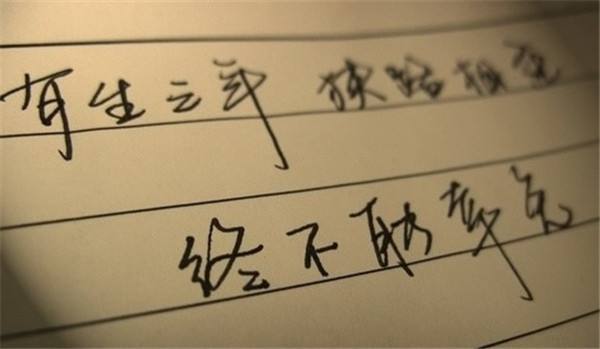 有生之年 狭路相逢
终不能幸免